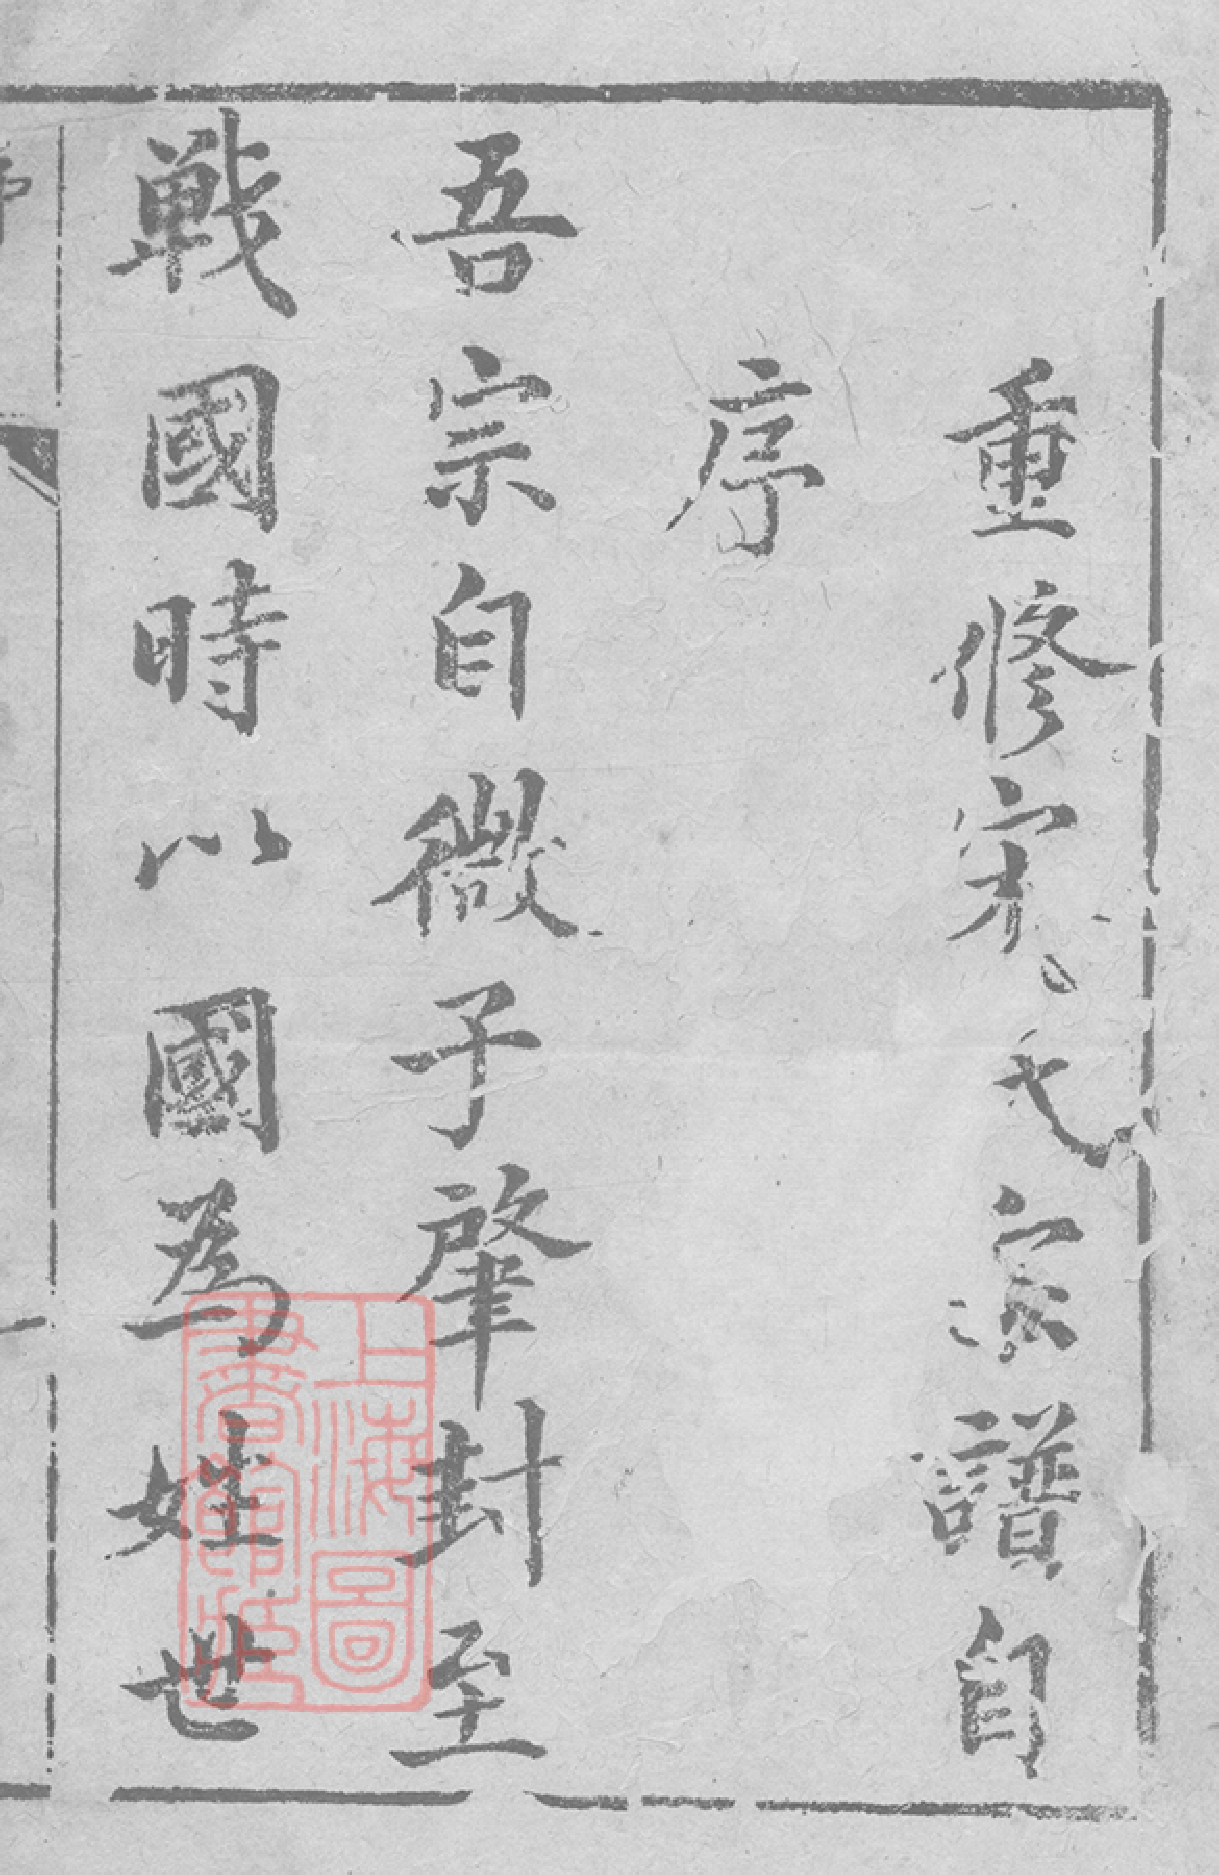 重修宋氏宗譜自
序
吾宗自微子肇封至
戰國時以國為姓世
上海圖
書館藏